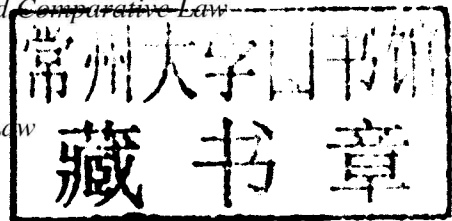 d Comparative Law
常州大学图书馆
aw
藏书章